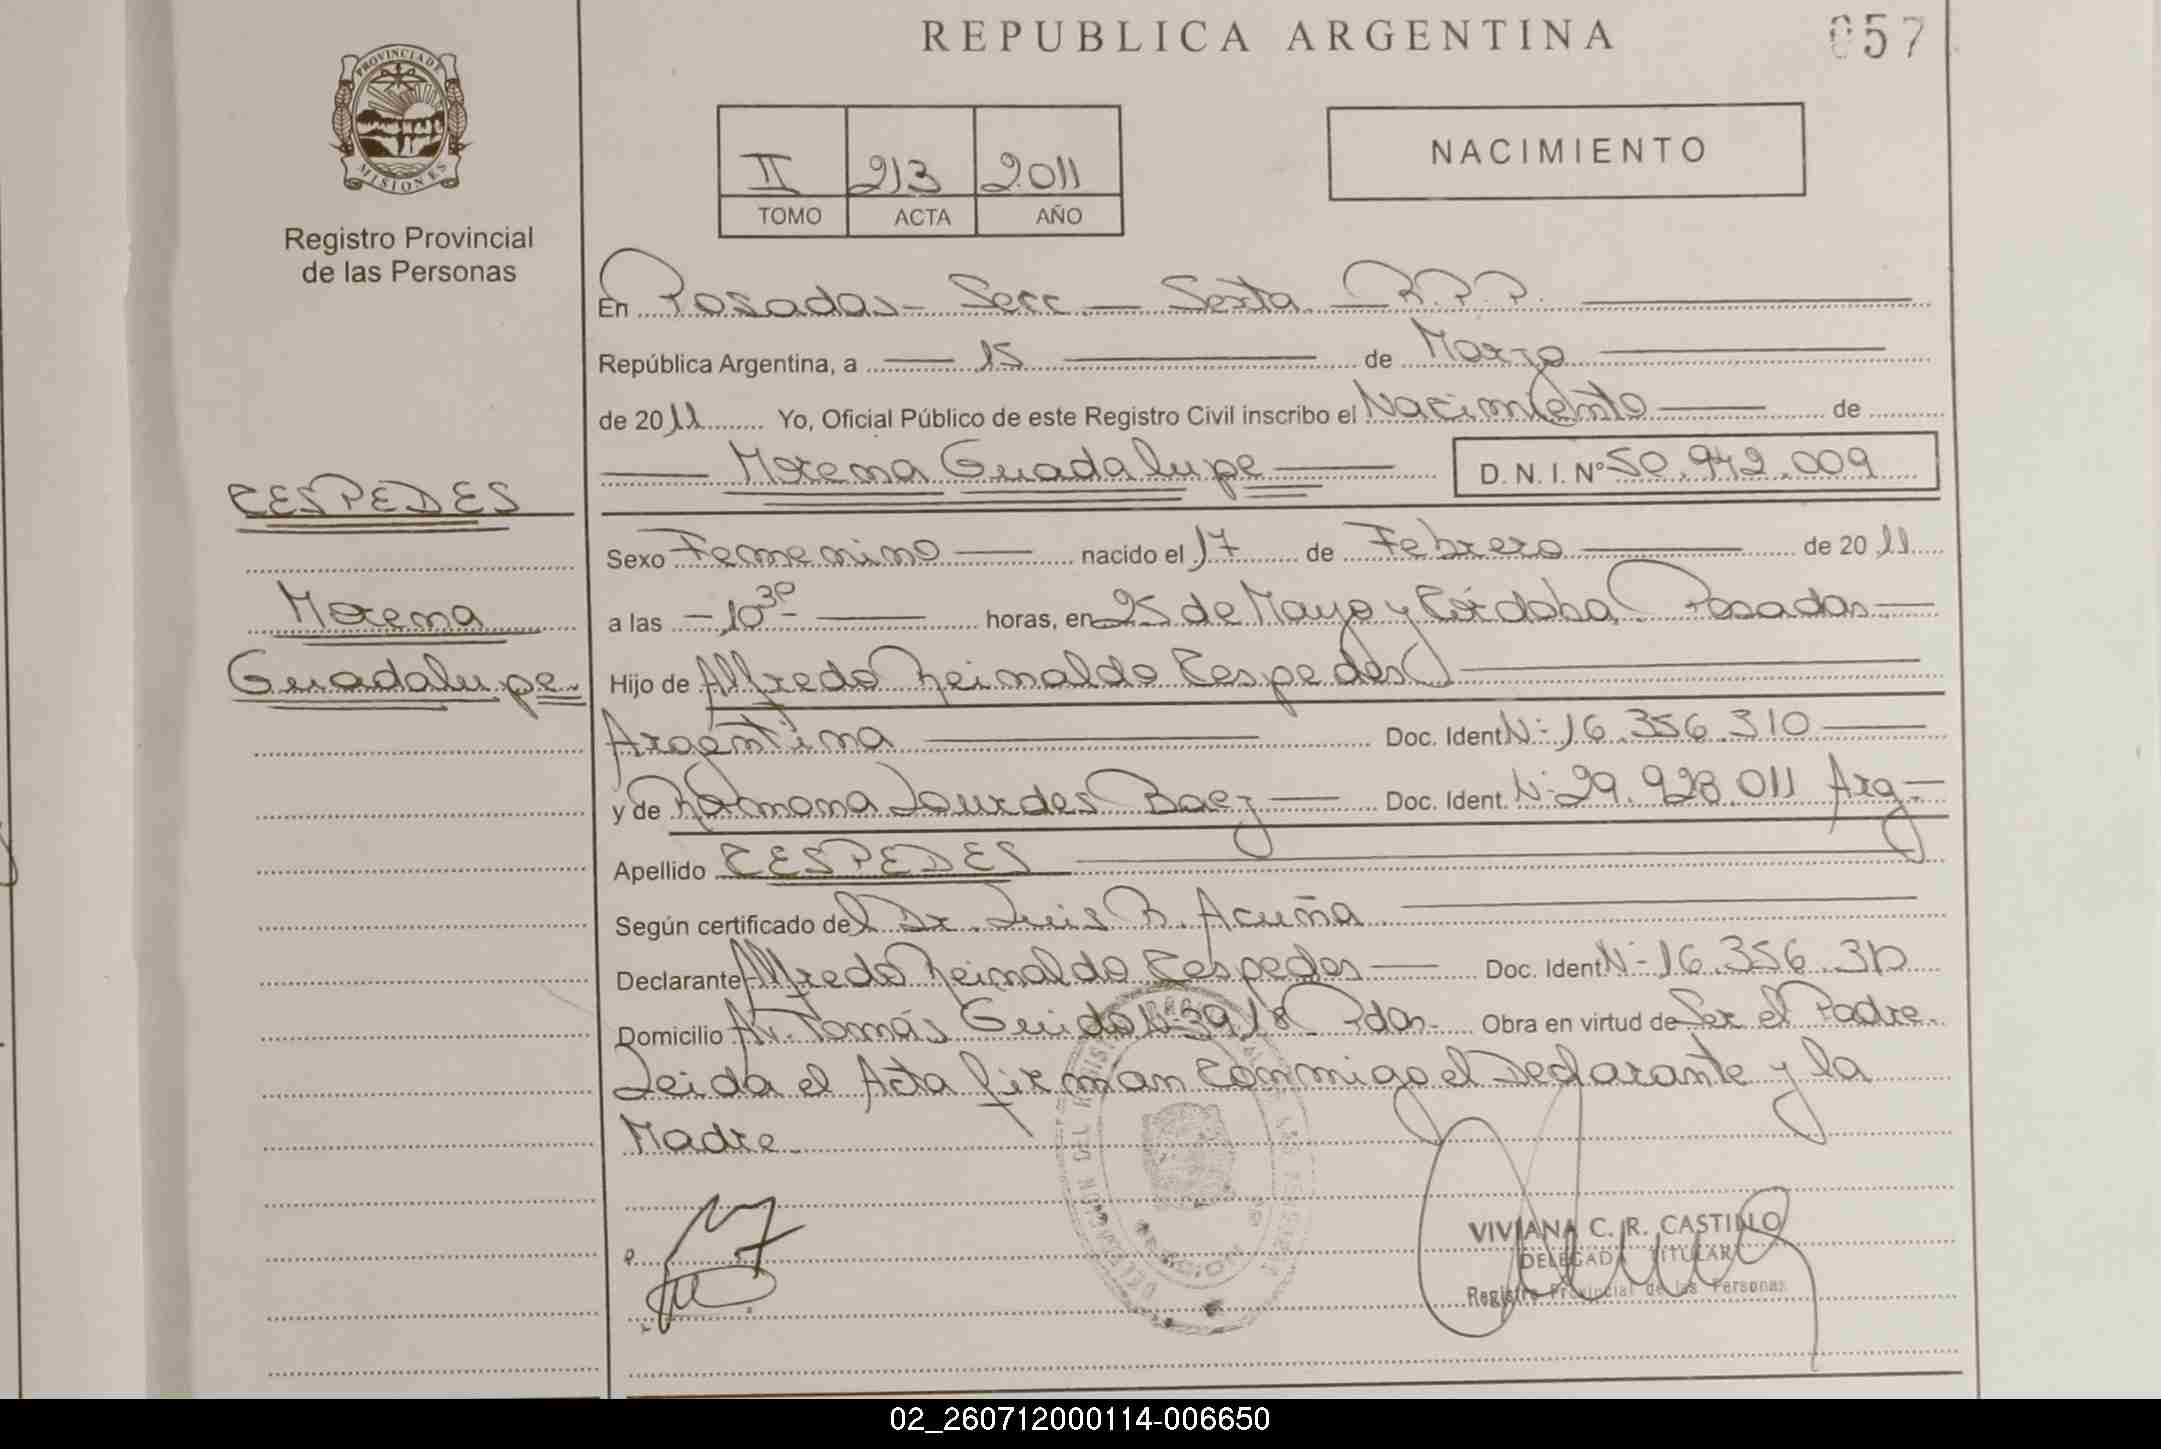 REPUBLICA ARGENTINA
057
PROVINCIA DE
MISIONES
Registro Provincial
de las Personas
II 213 2011
TOMO ACTA AÑO
NACIMIENTO
En Posadas - Secc - Sexta R.P.P.
República Argentina, a 15 de Marzo
de 2011 Yo, Oficial Público de este Registro Civil inscribo el Nacimiento de
Morena Guadalupe D.N.I. Nº 50.942.009
CESPEDES
Morena
Guadalupe.
Sexo Femenino nacido el 17 de Febrero de 2011
a las - 10 30 - horas, en 25 de Mayo y Córdoba Posadas
Hijo de Alfredo Reinaldo Cespedes
Argentina Doc. Ident. Nº 16.356.310
y de Ramona Lourdes Baez Doc. Ident. Nº 29.928.011 Arg
Apellido CESPEDES
Según certificado del Dr. Luis R. Acuña
Declarante Alfredo Reinaldo Cespedes Doc. Ident. Nº 16.356.310
Domicilio Av. Tomás Guido Nº 3918 Pdas. Obra en virtud de Ser el Padre.
Leida el Acta firman conmigo el Declarante y la
Madre.
VIVIANA C. R. CASTILLO
DELEGADA TITULAR
Registro Provincial de las Personas
02_260712000114-006650